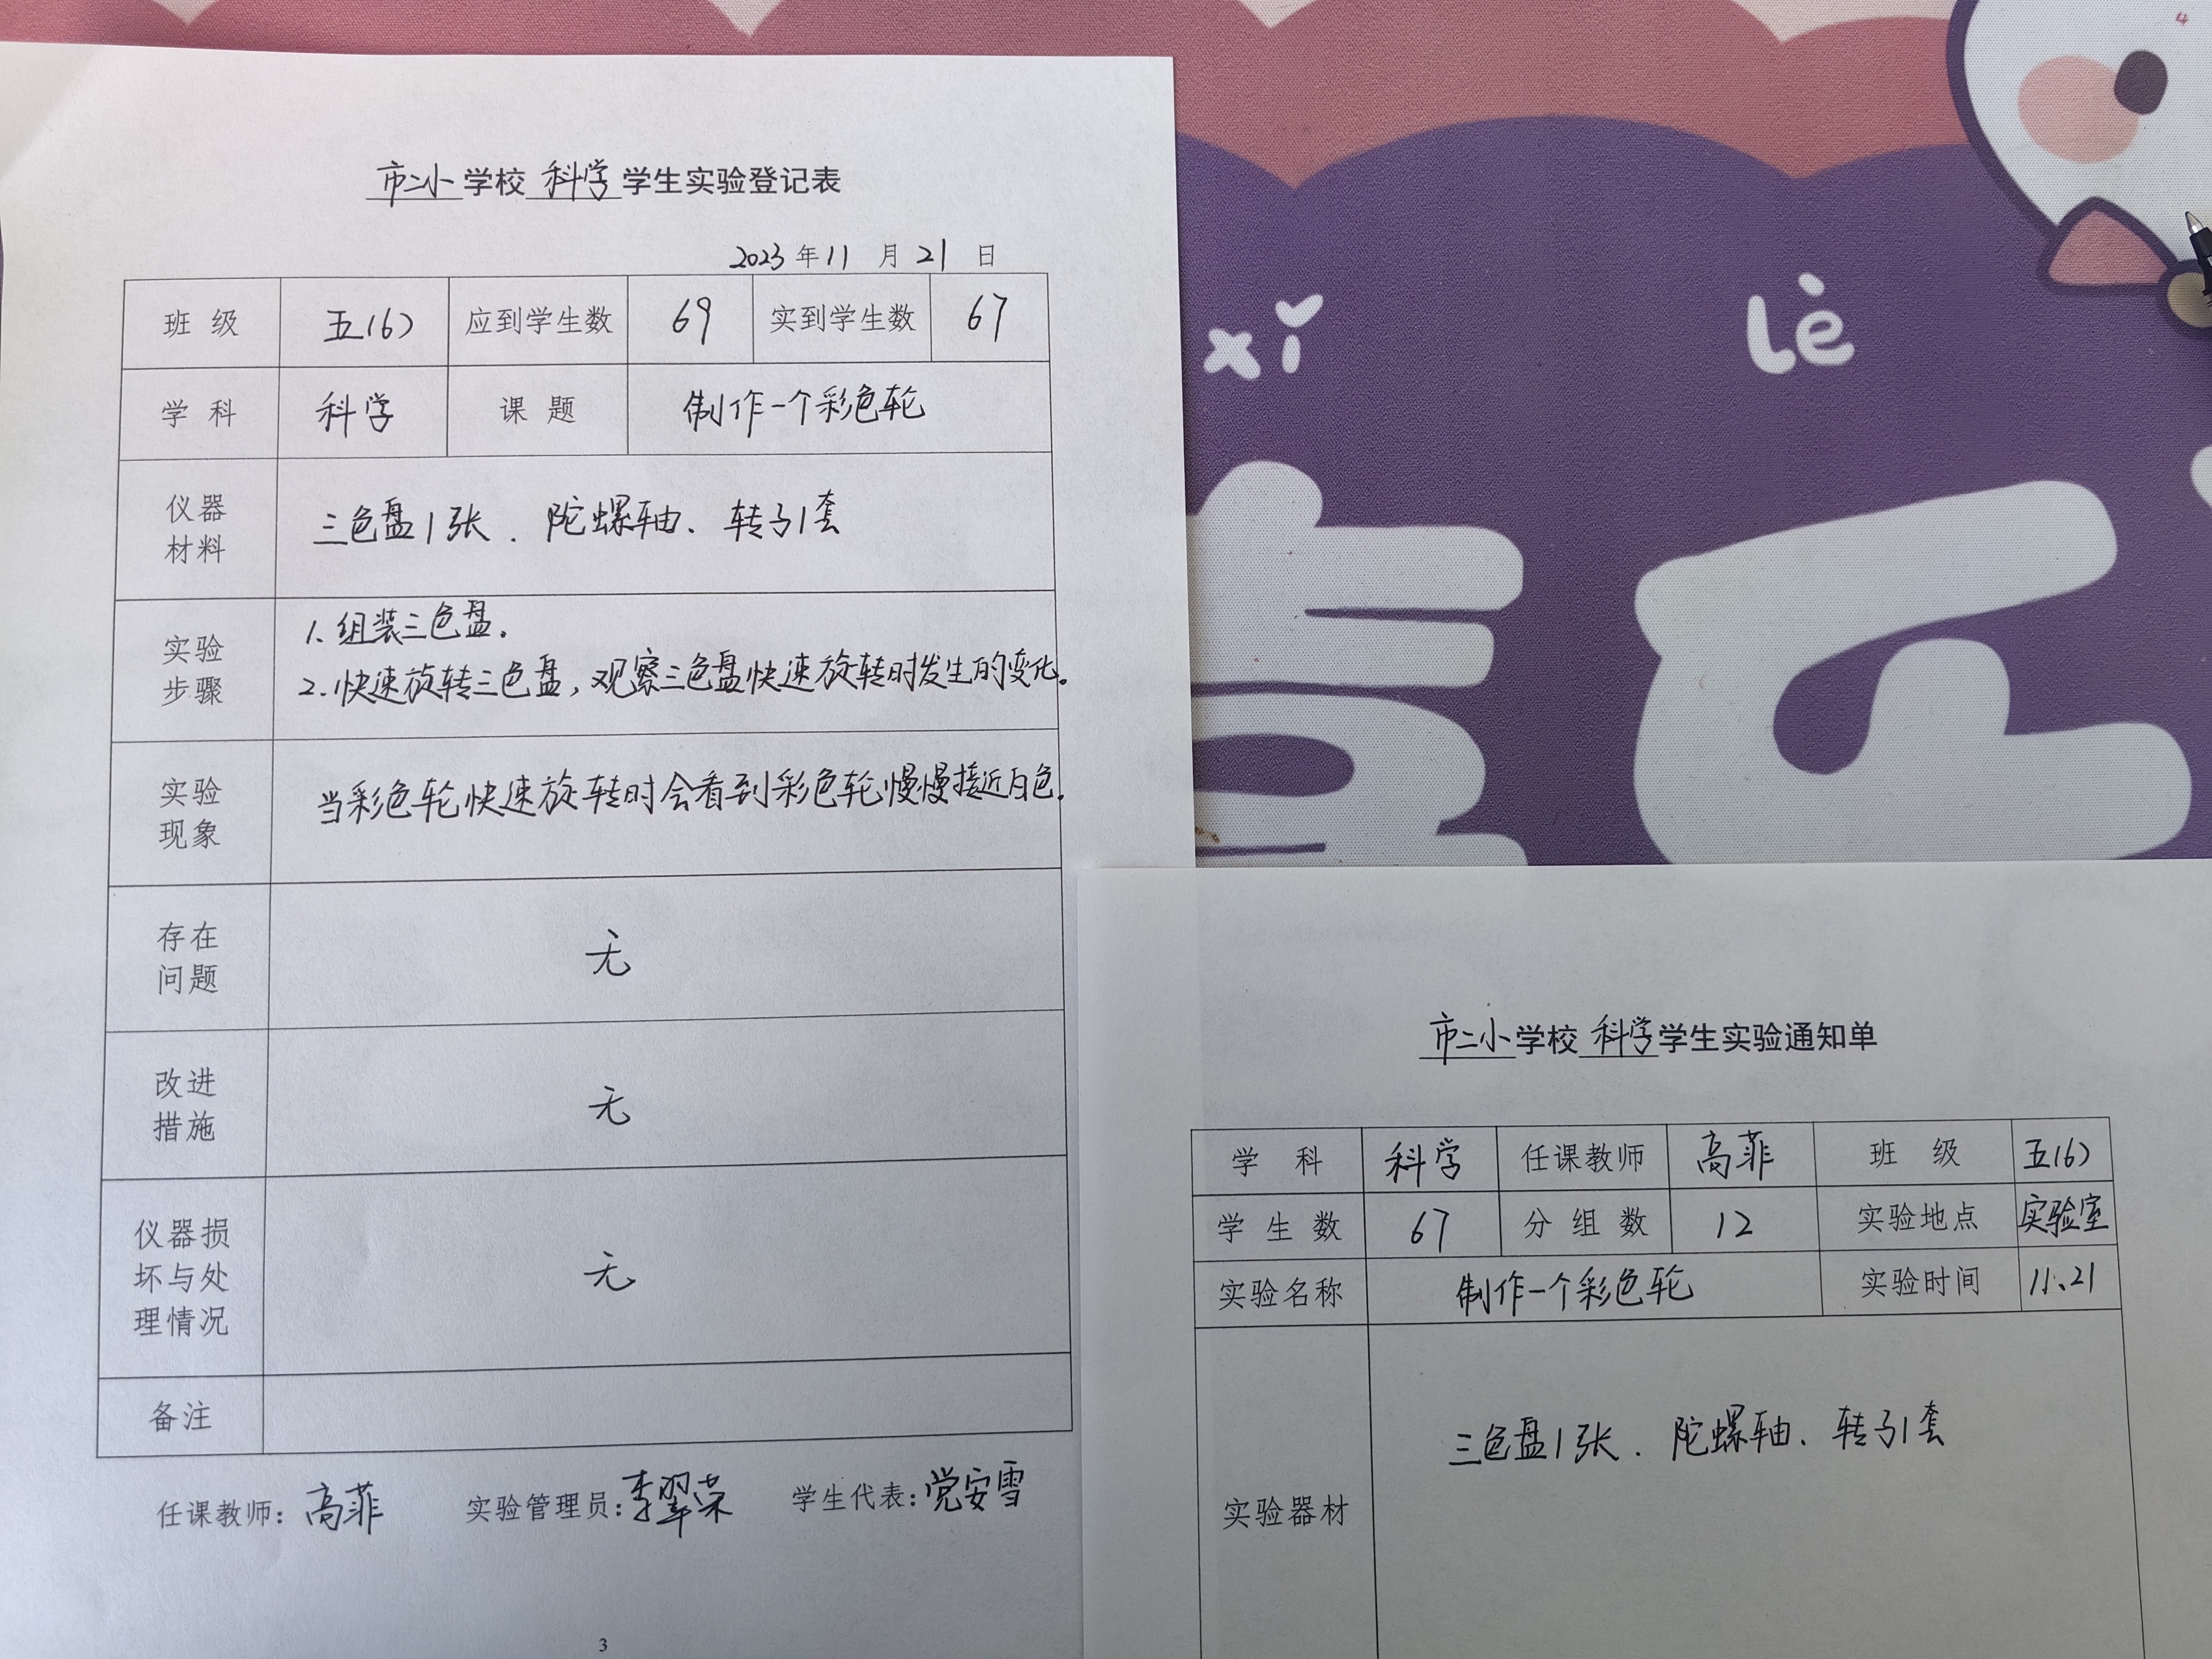 市二小学校科学学生实验登记表
2023年11月21日
班级 五(6) 应到学生数 69 实到学生数 67
学科 科学 课题 制作一个彩色轮
仪器材料 三色盘1张、陀螺轴、转子1套
实验步骤 1.组装三色盘.
2.快速旋转三色盘,观察三色盘快速旋转时发生的变化。
实验现象 当彩色轮快速旋转时会看到彩色轮慢慢接近白色.
存在问题 无
改进措施 无
仪器损坏与处理情况 无
备注
任课教师:高菲 实验管理员:李翠荣 学生代表:党安雪
3
xǐ
Lè
市二小学校科学学生实验通知单
学科 科学 任课教师 高菲 班级 五(6)
学生数 67 分组数 12 实验地点 实验室
实验名称 制作一个彩色轮 实验时间 11、21
实验器材 三色盘1张、陀螺轴、转子1套